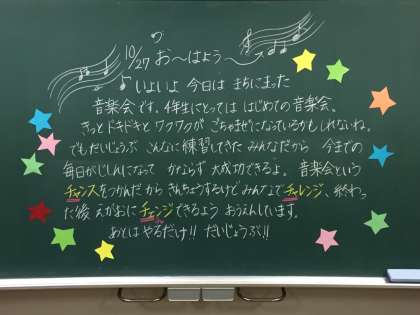 10/27 お〜はよう〜
いよいよ 今日は まちにまった
音楽会です。4年生にとっては はじめての音楽会。
きっと ドキドキと ワクワクが ごちゃまぜになっているかもしれないね。
でもだいじょうぶ こんなに練習してきた みんなだから 今までの
毎日がじしんになって かならず 大成功できるよ。 音楽会という
チャンスをつかんだから きんちょうするけど みんなでチャレンジ、終わっ
た後 えがおにチェンジできるよう おうえんしています。
あとは やるだけ!! だいじょうぶ!!